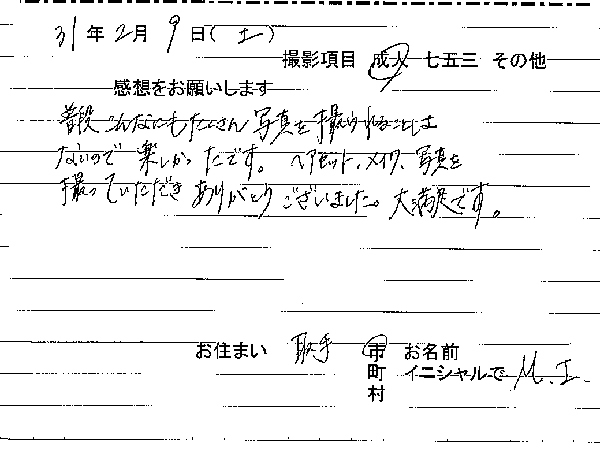 31年2月9日(土)
撮影項目 成人 七五三 その他
感想をお願いします
普段こんなにもたくさん写真を撮られることは
ないので楽しかったです。ヘアセット、メイク、写真を
撮っていただきありがとうございました。大満足です。
お住まい 取手 市 お名前
町 イニシャルで M.I.
村